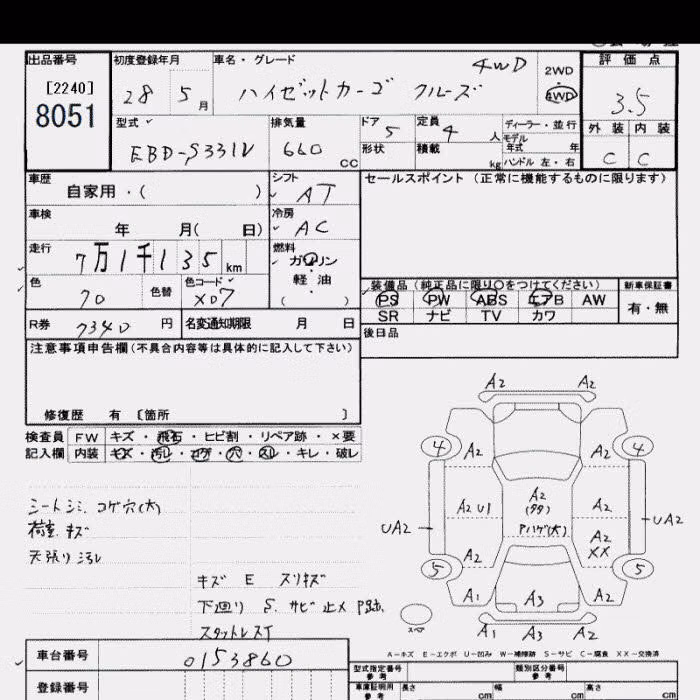 出品番号 初度登録年月 車名・グレード 4WD 2WD 評価点
[2240] 28 5月 ハイゼットカーゴ クルーズ 4WD 3.5
8051
型式 排気量 ドア 定員 ディーラー・並行 外装 内装
EBD-S331V 660cc 5 4人 モデル年式 年 C C
形状 積載 kg ハンドル 左・右
車歴 シフト セールスポイント(正常に機能するものに限ります)
自家用・( ) AT
車検 冷房
年 月( 日) AC
走行 燃料
7万1千135km ガソリン
色 色替 色コード 軽油
X07 ( )
装備品(純正品に限り○をつけてください) 新車保証書
PS PW ABS エアB AW 有・無
SR ナビ TV カワ
R券 7340円 名変通知期限 月 日
後日品
注意事項申告欄(不具合内容等は具体的に記入して下さい)
修復歴 有 〔箇所 〕
検査員 FW キズ・飛石・ヒビ割・リペア跡・×要
記入欄 内装 キズ・汚レ・コゲ・穴・スレ・キレ・破レ
シートシミ、コゲ穴(大)
荷室 キズ
天張り汚レ
キズ E スリキズ
下廻り S. サビ止メ
スタットレス
A2 A2
4 A2 A2 4
A2 U1 A2 A2
UA2 UA2
Pハゲ(大) A2
A2 XX
5 5
A1 A3 A2
スペア
A1 A3 A2
A-キズ E-エクボ U-凹み W-補修跡 S-サビ C-腐食 XX-交換済
車台番号 0153860
登録番号
型式指定番号 参考 類別区分番号 参考
車庫証明用 参考 長さ cm 幅 cm 高さ cm